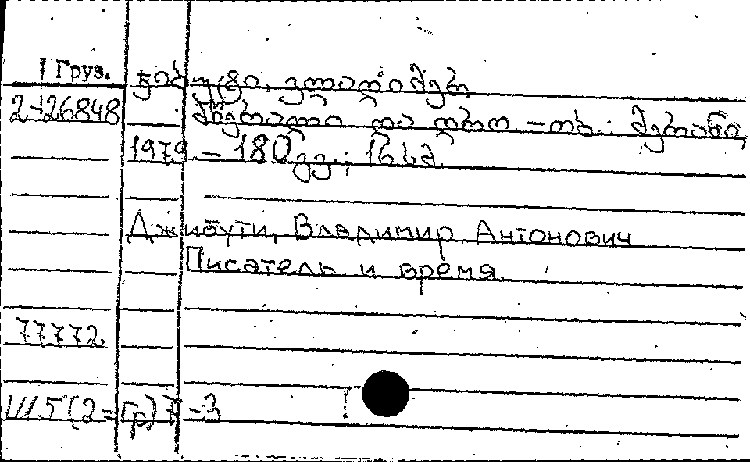 Груз. ჯიბუტი, ვლადიმერ
2-26848 მწერალი და დრო – თბ.: მერანი,
1979. – 180 გვ.; 16 სმ.
Джибути, Владимир Антонович
Писатель и время.
77772
Ш5(2=Гр)7-3